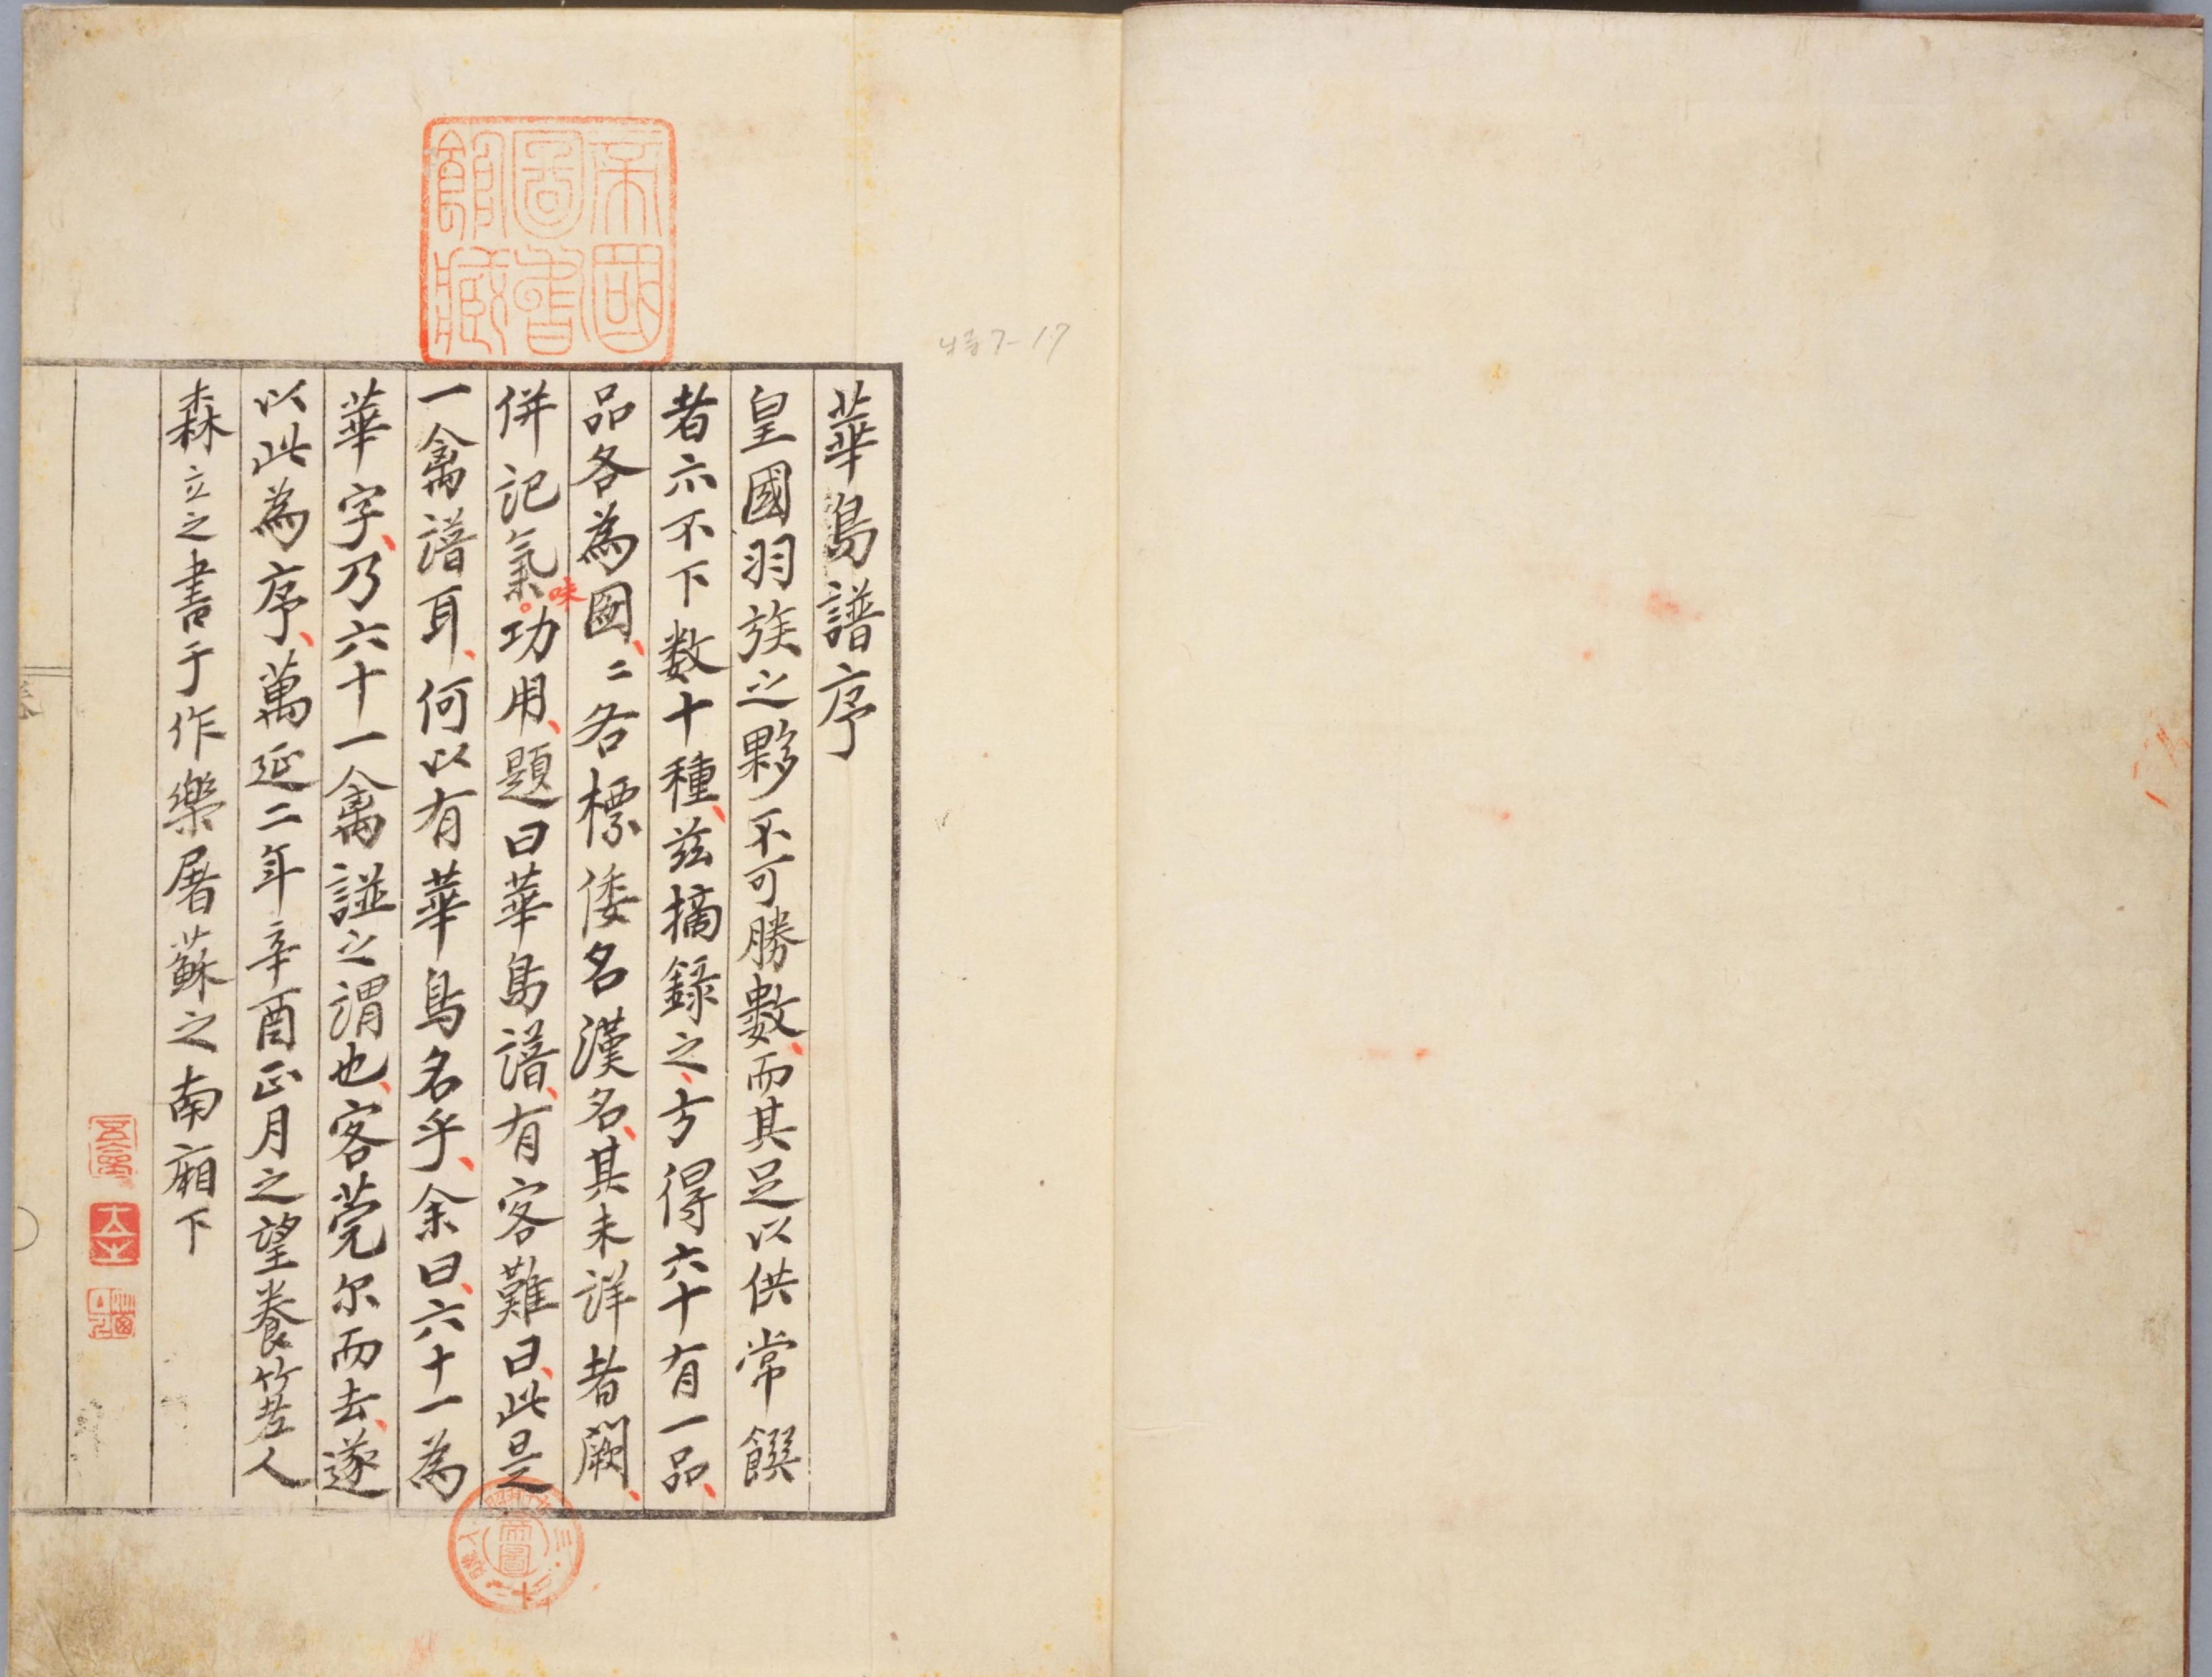 華鳥譜序
皇國羽族之夥不可勝數、而其足以供常饌
者亦不下数十種、茲摘録之、方得六十有一品、
品各為圖、〻各標倭名漢名、其未詳者闕、
併記氣。味功用、題曰華鳥譜、有客難曰、此是
一禽譜耳、何以有華鳥名乎、余曰、六十一為
華字、乃六十一禽譜之謂也、客莞尔而去、遂
以此為序、萬延二年辛酉正月之望養竹老人
森立之書于作樂屠蘇之南廂下
帝國圖書館藏
特7-17